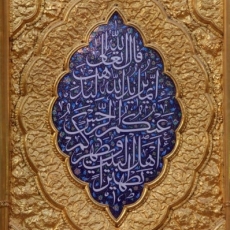 قال الله تعالى
إنما يريد الله ليذهب
عنكم الرجس
أهل البيت ويطهركم
تطهيرا